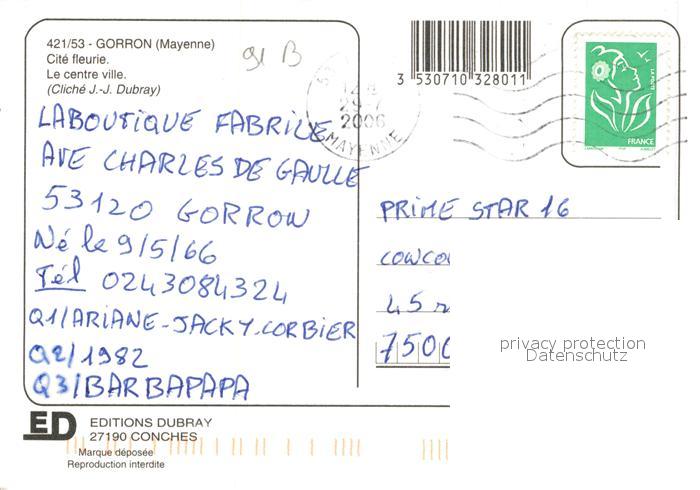 421/53 - GORRON (Mayenne)
Cité fleurie.
Le centre ville.
(Cliché J.-J. Dubray)
91 B
3 530710 328011
29-7
2006
MAYENNE
LA POSTE
FRANCE
LABOUTIQUE FABRICE
AVE CHARLES DE GAULLE
53120 GORRON
Né le 9/5/66
Tél 0243084324
Q1/ARIANE-JACKY-CORBIER
Q2/1982
Q3/BARBAPAPA
PRIME STAR 16
CONCO
45
750
privacy protection
Datenschutz
ED EDITIONS DUBRAY
27190 CONCHES
Marque déposée
Reproduction interdite